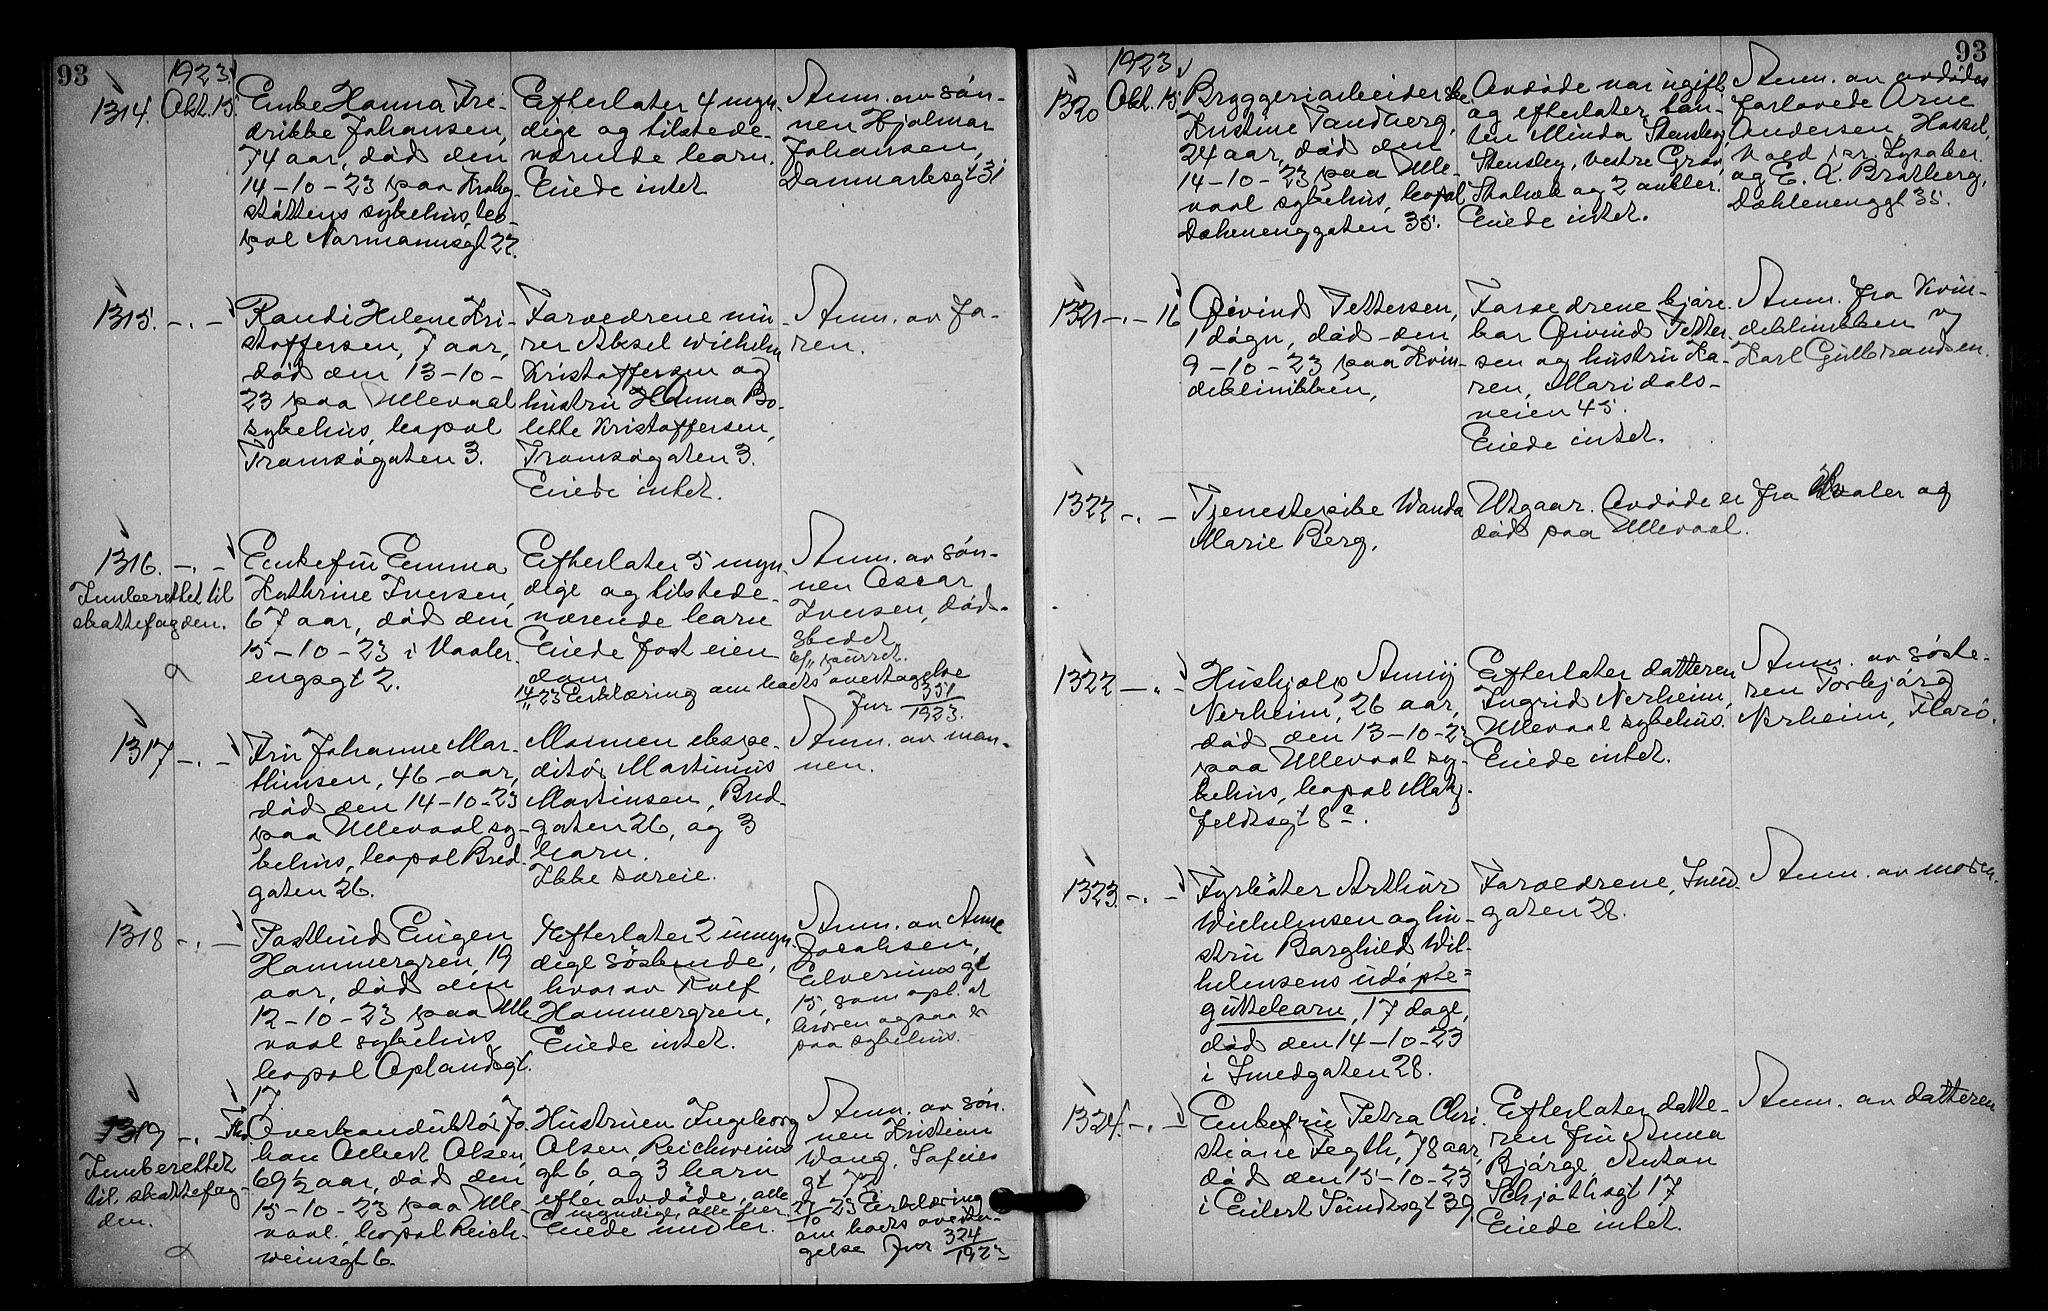 93
1923.
1314. Okt. 15.
Enke Hanna Fre-
drikke Johansen,
74 aar, død den
14-10-23 paa Krohg-
støttens sykehus, bo-
pæl Normannsgt 22.
Efterlater 4 myn-
dige og tilstede-
værende barn.
Eiede intet
Anm. av søn-
nen Hjalmar
Johansen,
Danmarksgt 31
1315. -.-
Randi Helene Kri-
stoffersen, 7 aar,
død den 13-10-
23 paa Ullevaal
sykehus, bopæl
Tromsøgaten 3.
Forældrene mu-
rer Aksel Wilhelm
Kristoffersen og
hustru Hanna Bo-
lette Kristoffersen,
Tromsøgaten 3.
Eiede intet.
Anm. av fa-
ren.
1316. -.-
Innberettet til
skattefogden.
Enkefru Emma
Kathrine Iversen,
67 aar, død den
15-10-23 i Vaaler-
engsgt 2.
Efterlater 5 myn-
dige og tilstede-
værende barn
Eiede fast eien
dom
Anm. av søn-
nen Oscar
Iversen, død-
sbedet
14/11 23 Erklæring om boets overtagelse
Jnr 351/1923.
1317 -.-
Fru Johanne Mar-
thinsen, 46 aar,
død den 14-10-23
paa Ullevaal sy-
kehus, bopæl Bred-
gaten 26.
Mannen ekspe-
ditør Martinius
Martinsen, Bred-
gaten 26, og 3
barn.
Ikke særeie.
Anm. av man-
nen.
1318 -.-
Postbud Eugen
Hammergren, 19
aar, død den
12-10-23 paa Ulle
vaal sykehus
bopæl Oplandsgt.
17.
Efterlater 2 umyn-
dige søskende,
hvorav Rolf
Hammergren.
Eiede intet.
Anm. av Anne
Jacobsen,
Elverumsgt
15, som opl. at
broren ogsaa er
paa sykehus.
1319 -.-
Innberettet
til skattefog-
den.
Overkonduktør Jo-
han Albert Olsen,
69½ aar, død den
15-10-23 paa Ulle-
vaal, bopæl Reich-
weinsgt 6.
Hustruen Ingeborg
Olsen, Reichweins
gt 6, og 3 barn
efter avdøde, alle
myndige, alle her
Eiede midler.
Anm. av søn-
nen Kristian
Wang, Sofies
gt 72
23 Erklæring
om boets overta-
gelse Jnr 324/1923
93
1923
1320 Okt. 15.
Bryggeriarbeiderske
Kristine Sandberg,
24 aar, død den
14-10-23 paa Ulle-
vaal sykehus, bopæl
Dælenenggaten 35.
Avdøde var ugift
og efterlater tan-
ten Minda Stensby
Stensby, vestre Grøn,
og 2 onkler.
Eiede intet.
Anm. av avdødes
forlovede Arne
Andersen, Hassel,
pr. Lysaker
og E. K. Bratberg,
Dæhlenenggt 35.
1321 -.- 16
Øivind Pettersen,
1 døgn, død den
9-10-23 paa Kvin-
deklinikken,
Forældrene kjøre-
kar Øivind Petter-
sen og hustru Ka-
ren, Maridals-
veien 45.
Eiede intet.
Anm. fra Kvin-
deklinikken og
Karl Gulbrandsen.
1322 -.-
Tjenestepike Wanda
Marie Berg.
Utgaar. Avdøde er fra Hvaler og
død paa Ullevaal.
1322 -.-
Hushjælp Anny
Nerheim, 26 aar,
død den 13-10-23
paa Ullevaal sy-
kehus, bopæl Maltz-
feldtsgt 8a.
Efterlater datteren
Ingrid Nerheim,
Ullevaal sykehus
Eiede intet.
Anm. av søste-
ren Torbjørg
Nerheim, Florø.
1323. -.-
Fyrbøter Arthur
Wilhelmsen og hu-
stru Borghild Wil-
helmsens udøpte
guttebarn, 17 dage,
død den 14-10-23
i Smedgaten 28.
Forældrene, Smed-
gaten 28.
Anm. av moren.
1324. -.-
Enkefru Petra Chri-
stiane Tegth, 78 aar,
død den 15-10-23
i Eilert Sundtsgt 39.
Efterlater datte-
ren fru Anna
Bjørge, Anton
Schjøthsgt 17
Eiede intet.
Anm. av datteren